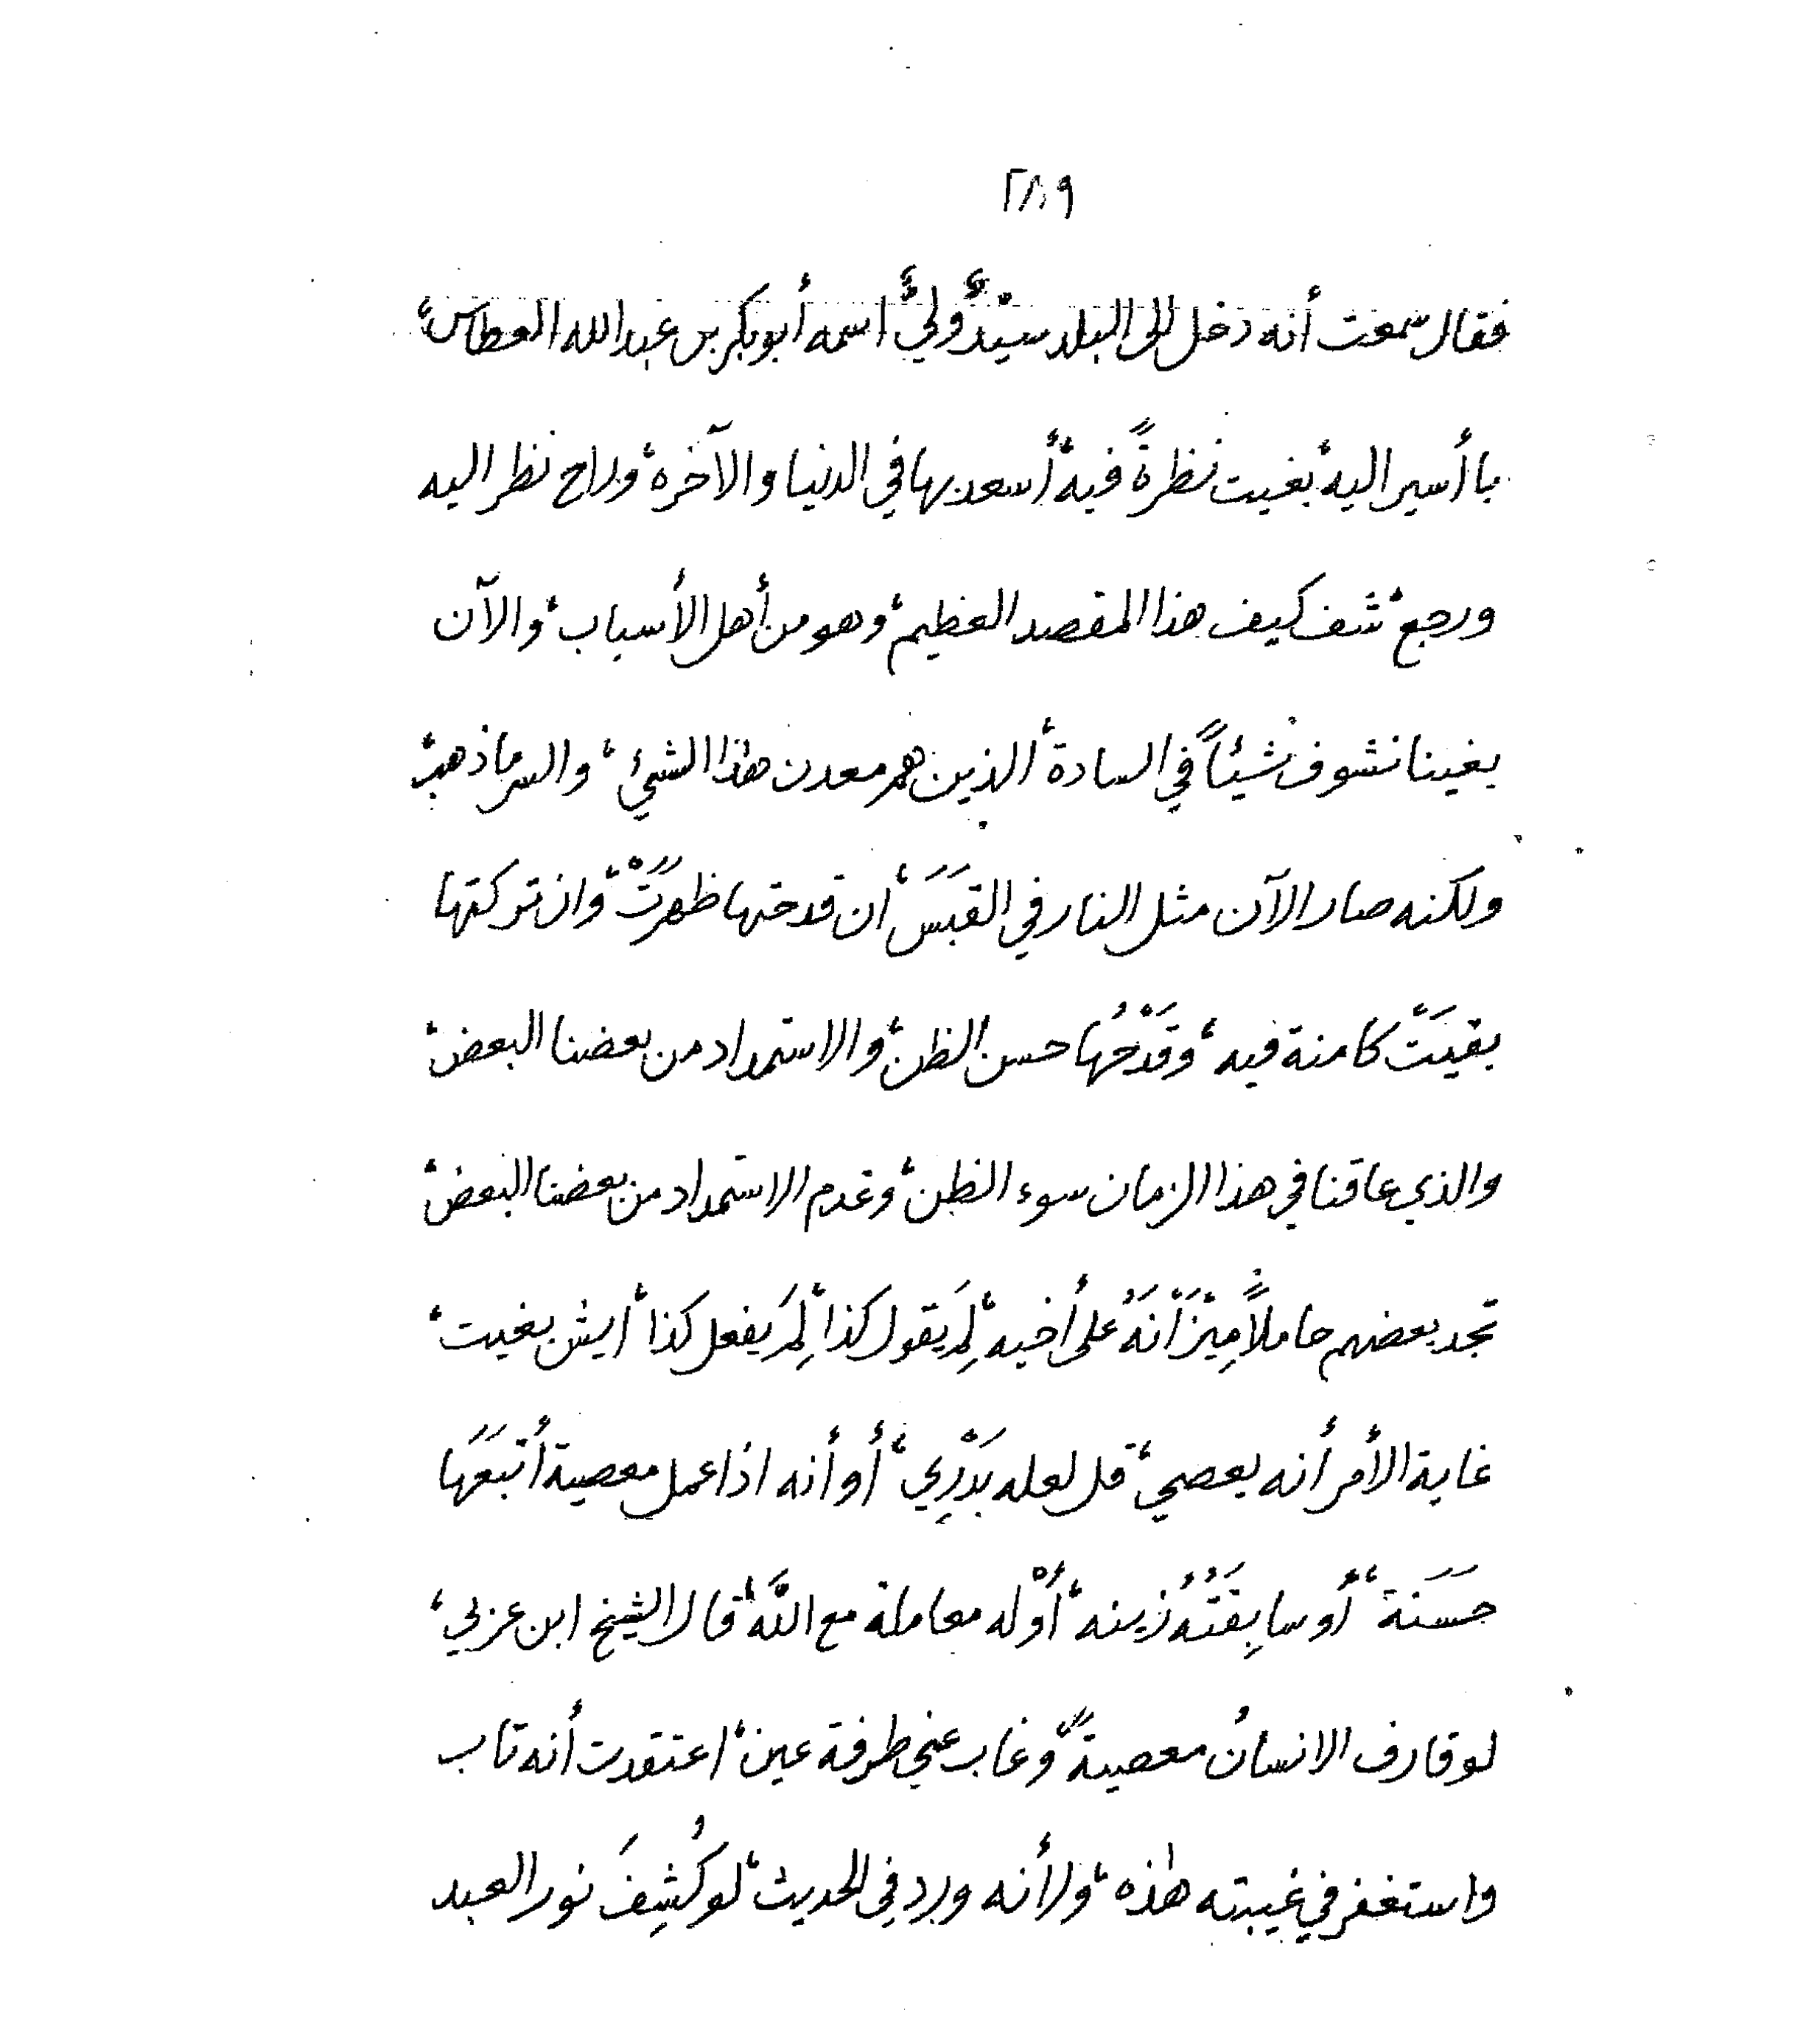 ٢٨٩
فقال سمعت أنه دخل إلى البلد سيّدٌ وليٌّ اسمه أبوبكر بن عبدالله العطاس،
با أسير اليه، بغيت نظرةً فيه، أسعد بها في الدنيا والآخره، وراح نظر اليه
ورجع، شف كيف هذا المقصد العظيم، وهو من أهل الأسباب، والآن
بغينا نشوف شيئاً في السادة، الذين هم معدن هٰذا الشئ، والسر ما ذهب،
ولكنه صار الآن مثل النار في القبَسَ، ان قدحتها ظهرَتْ، وان تركتها
بقيَتْ كامنة فيه، وقَدْحُها حسن الظن، والاستمداد من بعضنا البعض،
والذي عاقنا في هذا الزمان سوء الظن، وعدم الاستمداد من بعضنا البعض،
تجد بعضهم حاملاً مِيْزَانَهُ على أخيه، لِمَ يقول كذا، لِمَ يفعل كذا، ايش بغيت،
غاية الأمر أنه يعصي، قل لعله بَدْرِي، أو أنه اذا عمل معصية أتبَعَها
حسَنَة، أو سابِقَتُهُ زينه، أوْ له معاملة مع اللَّه، قال الشيخ ابن عربي،
لو قارف الانسانُ معصيةً، وغاب عني طرفة عين، اعتقدت أنه تاب
واستغفر في غيبته هٰذه، ولأنه ورد في الحديث، لو كُشِفَ نور العبد